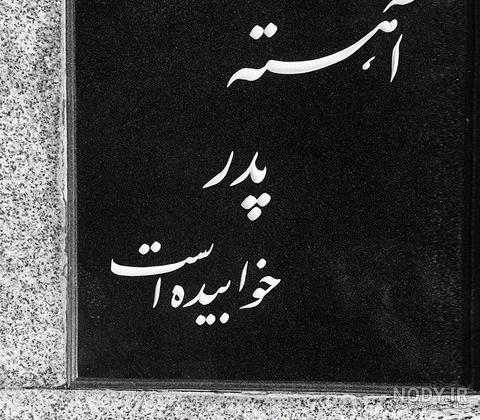 آهسته
پدر
خوابیده است
NODY.IR